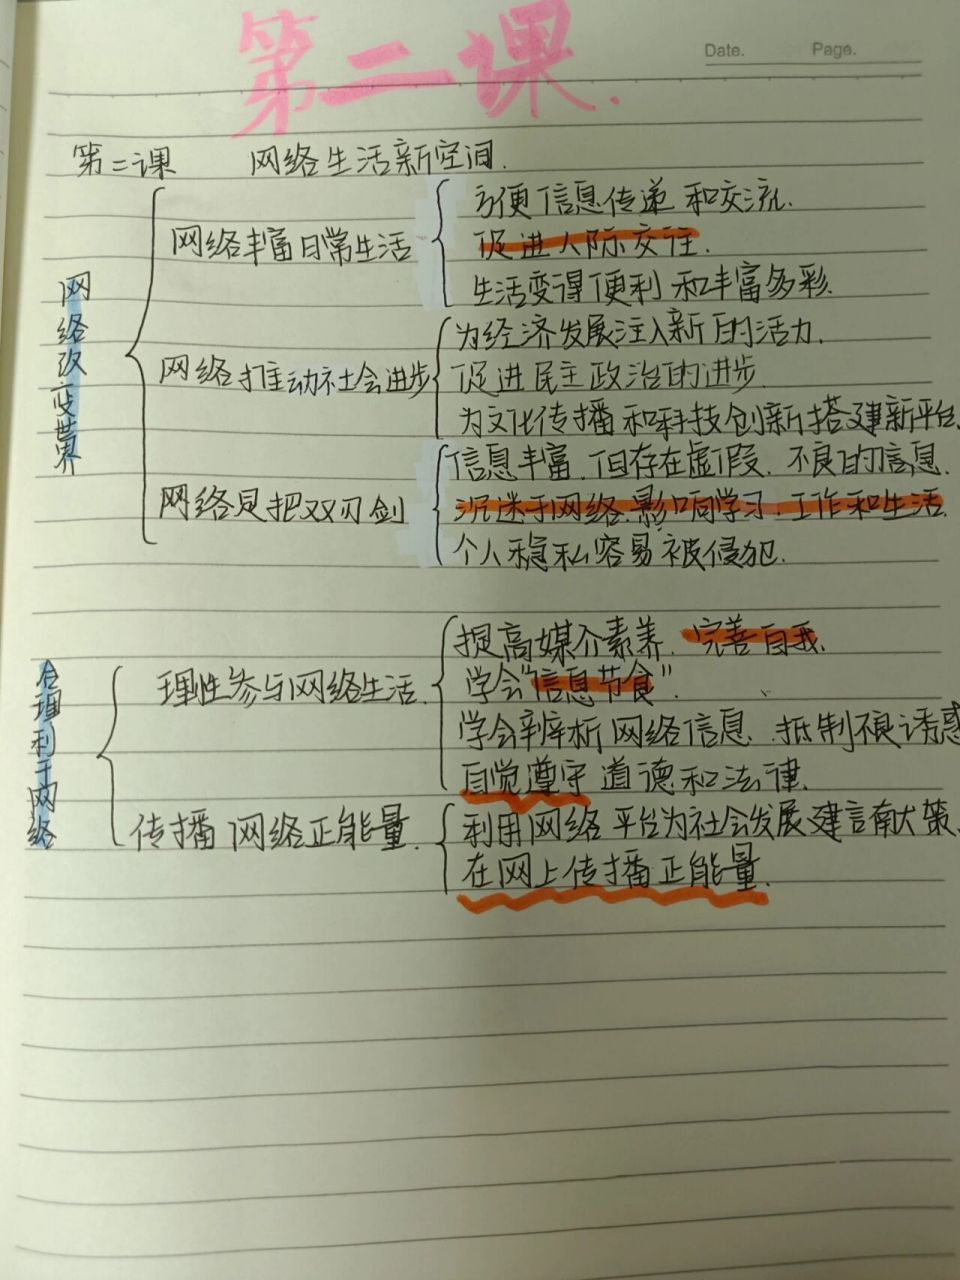 第二课.
Date. Page.
第二课 网络生活新空间.
网络改变世界
网络丰富日常生活
方便信息传递和交流.
促进人际交往.
生活变得便利和丰富多彩.
网络推动社会进步
为经济发展注入新的活力.
促进民主政治的进步.
为文化传播和科技创新搭建新平台.
网络是把双刃剑
信息丰富.但存在虚假、不良的信息.
沉迷于网络.影响学习、工作和生活
个人稳私容易被侵犯.
合理利于网络
理性参与网络生活.
提高媒介素养.完善自我.
学会“信息节食”.
学会辨析网络信息.抵制不良诱惑
自觉遵守道德和法律.
传播网络正能量.
利用网络平台为社会发展建言献策.
在网上传播正能量.